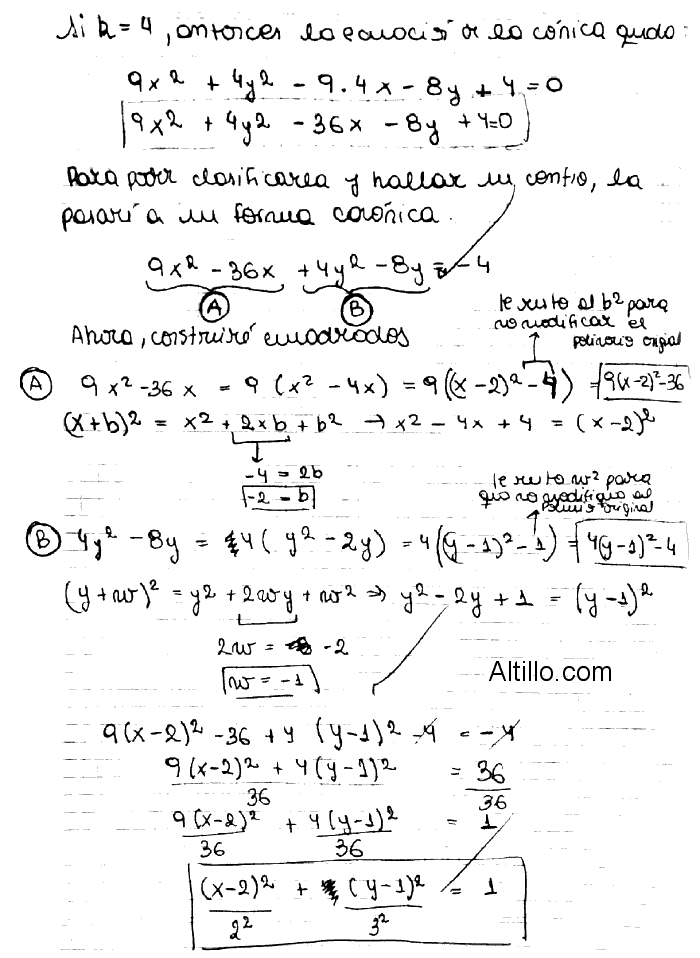 Si k = 4, entonces la ecuación de la cónica queda:
9x² + 4y² - 9.4x - 8y + 4 = 0
9x² + 4y² - 36x - 8y + 4=0
Para poder clasificarla y hallar su centro, la
pasaré a su forma canónica.
9x² - 36x + 4y² - 8y = -4
A B
Ahora, construiré cuadrados
le resto al b² para
no modificar el
polinomio original
A 9x² - 36x = 9 (x² - 4x) = 9((x-2)² - 4) = 9(x-2)²-36
(x+b)² = x² + 2xb + b² → x² - 4x + 4 = (x-2)²
-4 = 2b
-2 = b
le resto w² para
que no modifique el
polinomio original
B 4y² - 8y = 4( y² - 2y) = 4((y-1)² - 1) = 4(y-1)²-4
(y+w)² = y² + 2wy + w² ⇒ y² - 2y + 1 = (y-1)²
2w = -2
w = -1
Altillo.com
9(x-2)² - 36 + 4 (y-1)² - 4 = -4
9(x-2)² + 4(y-1)² = 36
36 36
9(x-2)² + 4(y-1)² = 1
36 36
(x-2)² + (y-1)² = 1
2² 3²